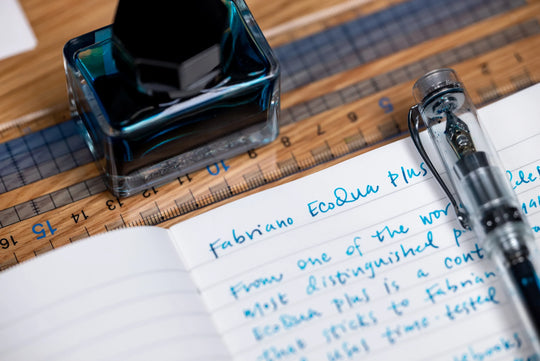 Fabriano EcoQua Plus
From one of the wor
most distinguished p
EcoQua Plus is a cont
that sticks to Fabrian
was time-tested
16 15 14 13 12 11 10 9 8 7 6 5 2 1